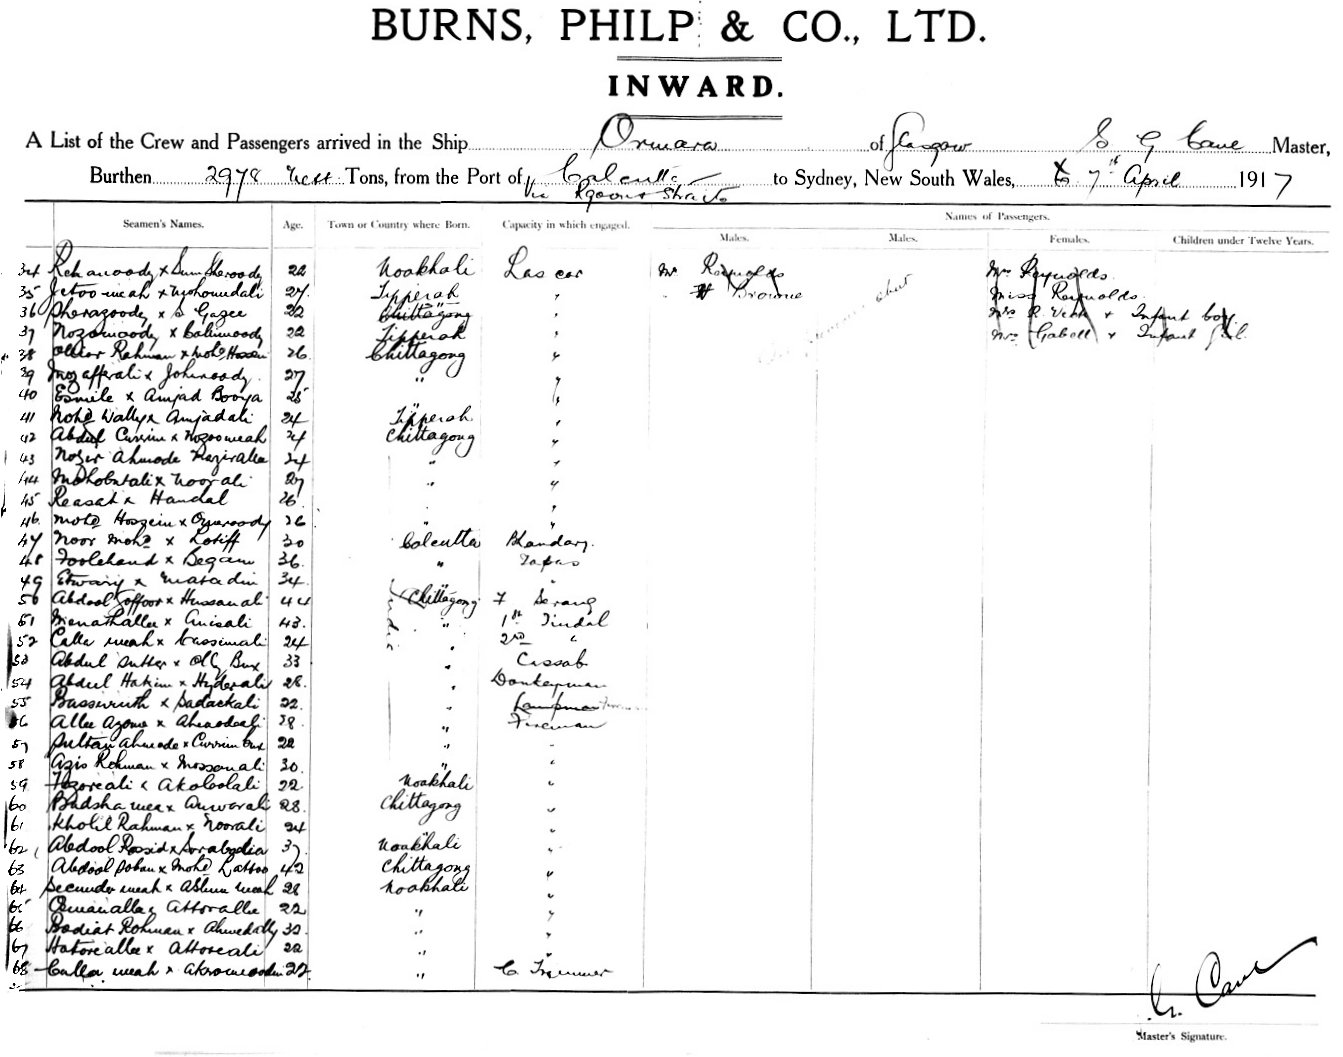 BURNS, PHILP & CO., LTD.
INWARD.
A List of the Crew and Passengers arrived in the Ship Ormara of Glasgow S G Cave Master,
Burthen 2978 nett Tons, from the Port of Calcutta to Sydney, New South Wales, 7th April 1917
via Straits
Names of Passengers.
Seamen's Names. Age. Town or Country where Born. Capacity in which engaged. Males. Males. Females. Children under Twelve Years.
34 22 Noakhali Lascar Mr Reynolds Mrs Reynolds
35 Jetoo meah x Mohomedali 27 Tipperah " Browne Miss Reynolds
36 Sherazoody x S Gazee 22 Chittagong " Mrs R. + Infant boy
37 Nozomoody x 22 Tipperah " Mrs Gabell + Infant Girl
38 Rahman x Mohd Hossein 26 Chittagong "
39 Mozafferali x Johiroody 27 " "
40 Esmile x Amjad Booya 25 "
41 Mohd Wally x Amjadali 24 Tipperah "
42 Abdul Currim x Nozoomeah 24 Chittagong "
43 Nozir Ahmode Naziralla 24 " "
44 Mohobutali x Noorali 27 " "
45 Reasat x Handal 26 "
46 Mohd Hossein x Omeroody 26 " "
47 Noor Mohd x Lotiff 30 Calcutta Bhandary
48 Foolchand x Begam 36 " Topas
49 Etwary x Matadin 34 " "
50 Abdool Goffoor x Hussanali 44 Chittagong F Serang
51 Menathallee x Anisali 43 " 1st Tindal
52 Calla meah x Cassimali 24 " 2nd "
53 Abdul Sutter x Olly Bux 33 " Cassab
54 Abdul Hakim x Hyderali 28 " Donkeyman
55 x Sadackali 22 " Lampman
56 Allee Azome x 38 " Fireman
57 Sultan Ahmode x Currim bux 22 " "
58 Azis Rohman x Mossonali 30 " "
59 Fozoreali x Akoloolali 22 Noakhali "
60 Badsha mea x Anwarali 28 Chittagong "
61 Kholil Rahman x Noorali 24 " "
62 Abdool Rossid x Sorabodia 37 Noakhali "
63 Abdool Soban x Mohd Lattoo 42 Chittagong "
64 Secunder meah x Aslim meah 28 Noakhali "
65 Osmanallee x Attorallee 22 " "
66 Badiat Rohman x Ahmedally 32 " "
67 Hatoreallee x Attoreali 22 " "
68 Calla meah x Akromooden 22 " C Trimmer
G. Cave
Master's Signature.